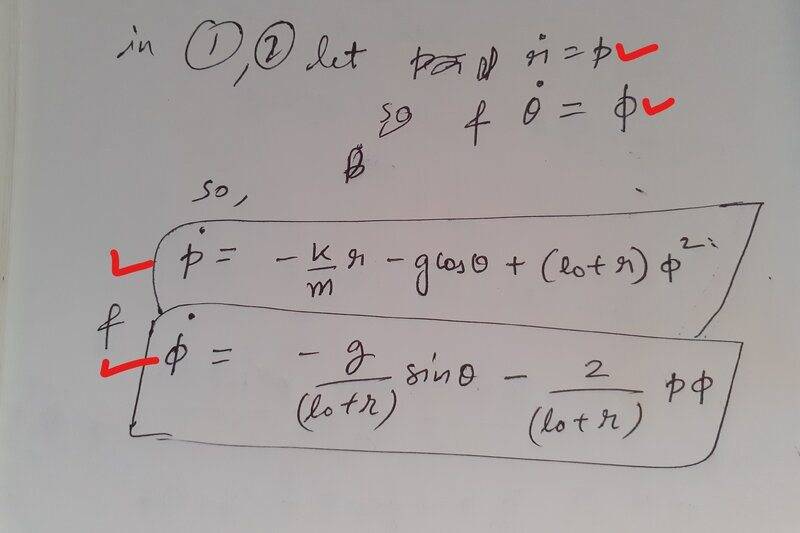 in ①, ② let ṙ = p
so & θ̇ = ϕ
so,
ṗ = - k/m r - g cosθ + (l₀+r) ϕ²
&
ϕ̇ = - g/(l₀+r) sinθ - 2/(l₀+r) pϕ